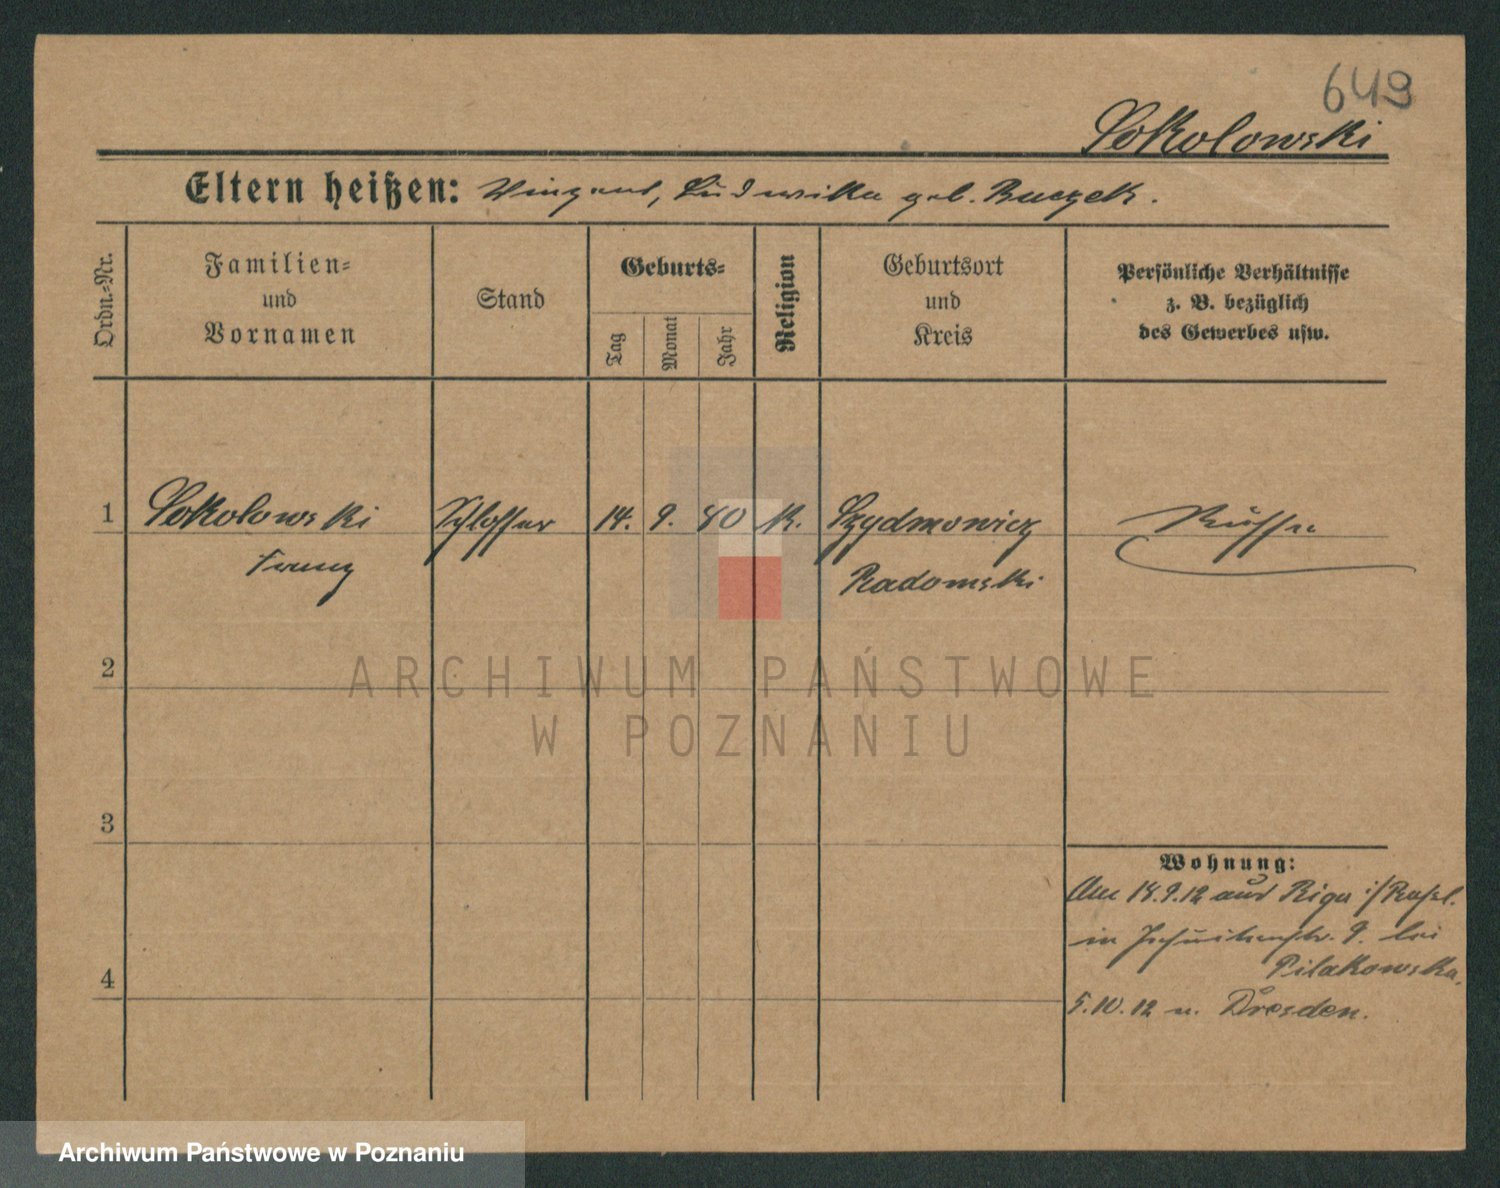 649
Sokolowski
Eltern heißen: Vinzent, Ludwika geb. Buczek.
Ordn.-Nr.
Familien-
und
Vornamen
Stand
Geburts-
Tag
Monat
Jahr
Religion
Geburtsort
und
Kreis
Persönliche Verhältnisse
z. B. bezüglich
des Gewerbes usw.
1 Sokolowski Schlosser 14. 9. 80 k. Szydmowicz Russe
Franz Radomski
2
ARCHIWUM PAŃSTWOWE
W POZNANIU
3
Wohnung:
Am 18.9.12 aus Riga
in Jesuitenstr. 9. bei
Pilakowska.
4
5.10.12 n. Dresden.
Archiwum Państwowe w Poznaniu